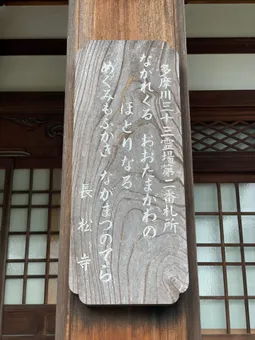 多摩川三十三霊場第二番札所
ながれくる おおたまがわの
ほとりなる
めぐみもふかき ながまつのてら
長松寺